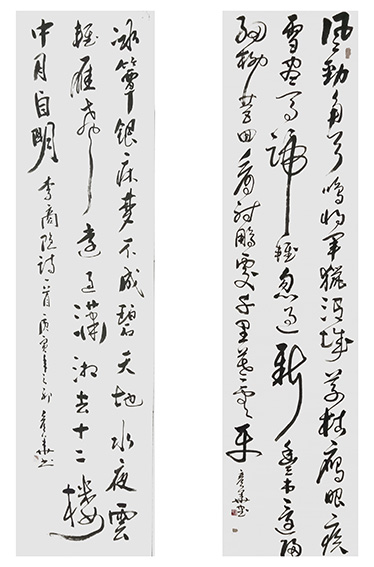 風勁角弓鳴將軍獵渭城草枯鷹眼疾
雪盡馬蹄輕忽過新豐市還歸
細柳營回看射鵰處千里暮雲平
冰簟銀床夢不成碧天如水夜雲
輕雁聲遠過瀟湘去十二樓
中月自明 李商隐詩一首